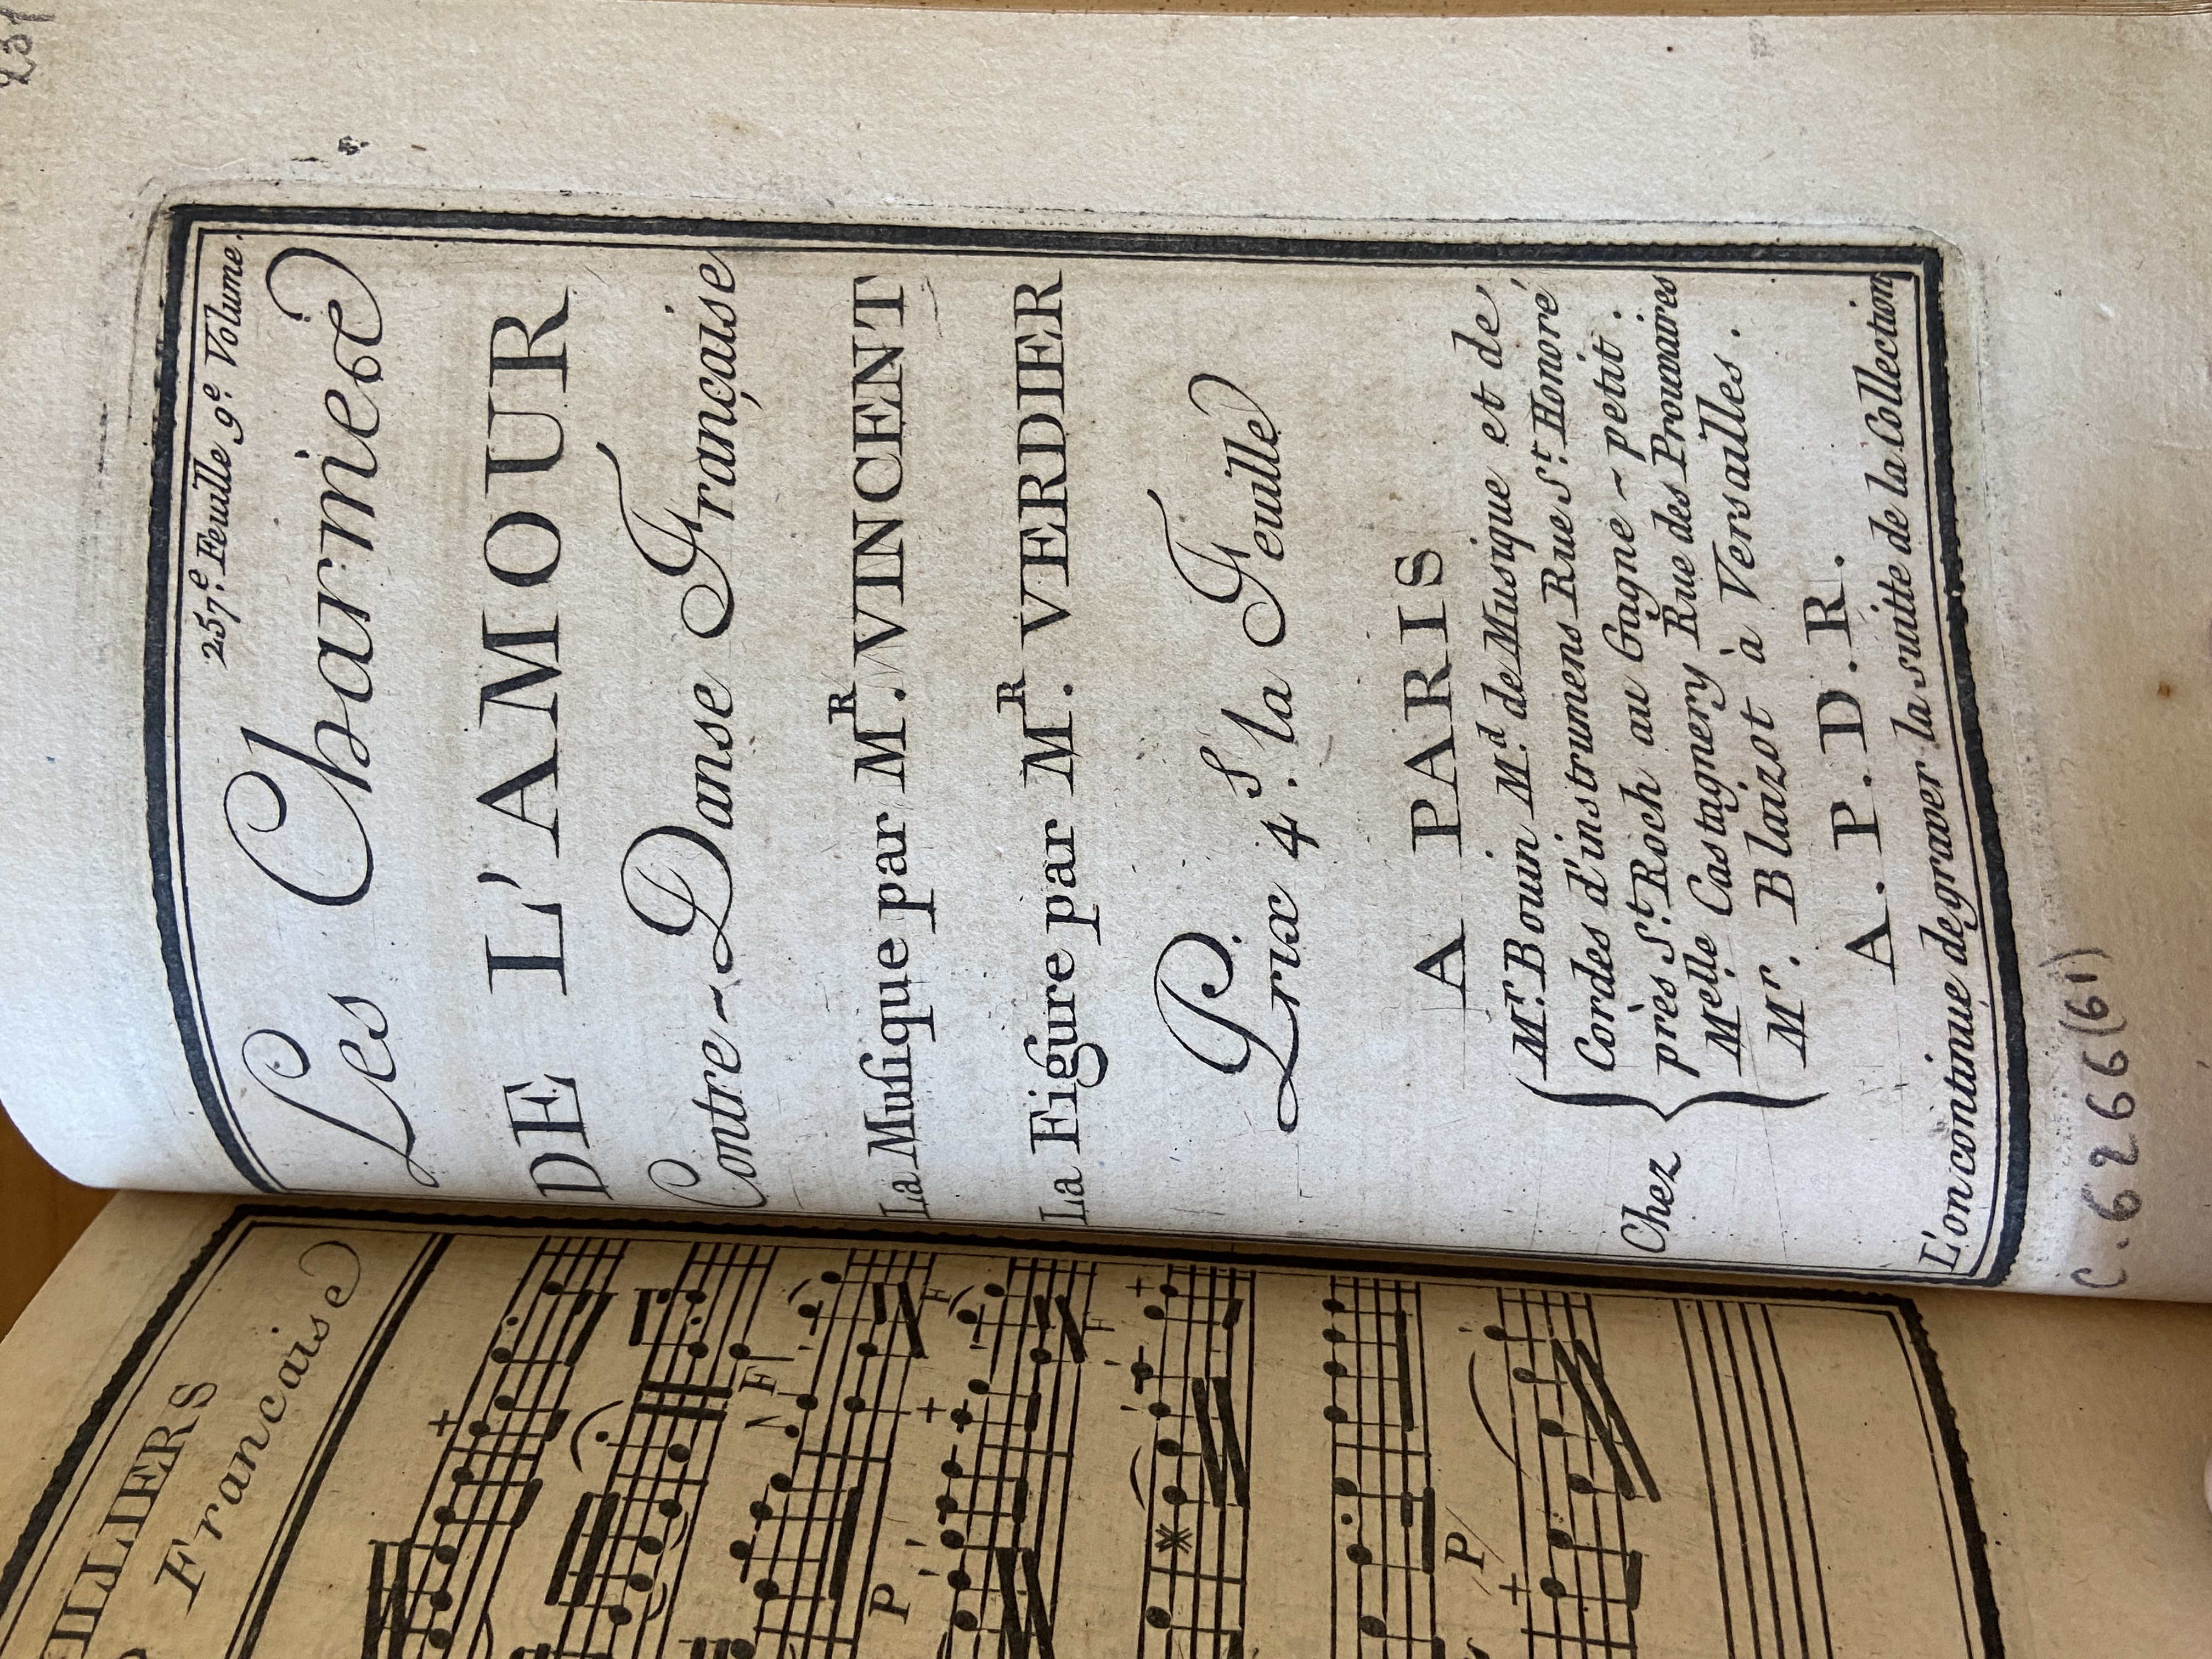 257.e Feuille 9.e Volume.
Les Charmes
DE L'AMOUR
Contre~Danse Française
La Musique par M.R VINCENT
La Figure par M.R VERDIER
Prix 4.s la Feuille
A PARIS
Chez
M.r Bouin M.d de Musique et de
Cordes d'instrumens Rue S.t Honoré
près S.t Roch au Gagne~petit.
M.elle Castagnery Rue des Prouvaires
M.r Blaizot à Versailles.
A. P. D. R.
L'on continue de graver la suitte de la Collection
C. 6266(61)
Francaise
P
F
P
F
F
P